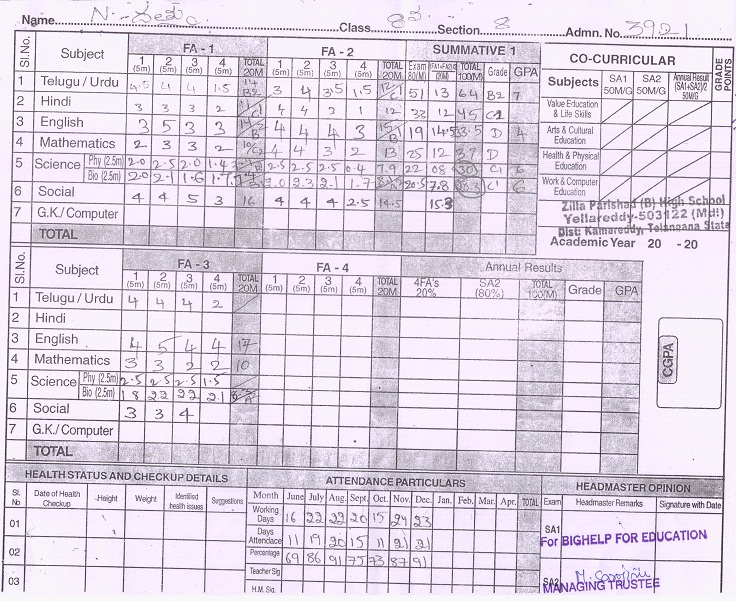 Name N. Class 8 Section 8 Admn. No. 3921
Sl.No. Subject FA - 1 FA - 2 SUMMATIVE 1
1 (5m) 2 (5m) 3 (5m) 4 (5m) TOTAL 20M 1 (5m) 2 (5m) 3 (5m) 4 (5m) TOTAL 20M Exam 80(M) TOTAL 100(M) Grade GPA
1 Telugu / Urdu 4.5 4 4 1.5 B2 3 4 3.5 1.5 51 13 64 B2 7
2 Hindi 3 3 3 2 4 4 2 1 12 33 12 45 C1
3 English 3 5 3 3 4 4 4 3 19 14.5 33.5 D 4
4 Mathematics 2 3 3 2 4 4 3 2 13 25 12 37 D
5 Science Phy (2.5m) 2.0 2.5 2.0 1.4 2.5 2.5 2.5 0.4 7.9 22 08 30 C1 6
Bio (2.5m) 2.0 2.1 1.6 1.7 2.0 2.3 2.1 1.7 20.5 7.8 C1 6
6 Social 4 4 5 3 16 4 4 4 2.5 14.5 15.3
7 G.K./ Computer
TOTAL
CO-CURRICULAR
GRADE POINTS
Subjects SA1 50M/G SA2 50M/G Annual Result (SA1+SA2)/2 50M/G
Value Education & Life Skills
Arts & Cultural Education
Health & Physical Education
Work & Computer Education
Zilla Parishad (B) High School
Yellareddy-503122 (Mdl)
Dist: Kamareddy, Telangana State
Academic Year 20 - 20
Sl.No. Subject FA - 3 FA - 4 Annual Results
1 (5m) 2 (5m) 3 (5m) 4 (5m) TOTAL 20M 1 (5m) 2 (5m) 3 (5m) 4 (5m) TOTAL 20M 4FA's 20% SA2 (80%) TOTAL 100(M) Grade GPA
1 Telugu / Urdu 4 4 4 2
2 Hindi
3 English 4 5 4 4 17
4 Mathematics 3 3 2 2 10
5 Science Phy (2.5m) 2.5 2.5 2.5 1.5
Bio (2.5m) 1.8 2.2 2.2 2.1
6 Social 3 3 4
7 G.K./ Computer
TOTAL
CGPA
HEALTH STATUS AND CHECKUP DETAILS
Sl. No Date of Health Checkup Height Weight Identified health issues Suggestions
01
02
03
ATTENDANCE PARTICULARS
Month June July Aug. Sept. Oct. Nov. Dec. Jan. Feb. Mar. Apr. TOTAL
Working Days 16 22 22 20 15 24 23
Days Attendace 11 19 20 15 11 21 21
Percentage 69 86 91 75 73 87 91
Teacher Sig
H.M. Sig.
HEADMASTER OPINION
Exam Headmaster Remarks Signature with Date
SA1
For BIGHELP FOR EDUCATION
SA2
MANAGING TRUSTEE